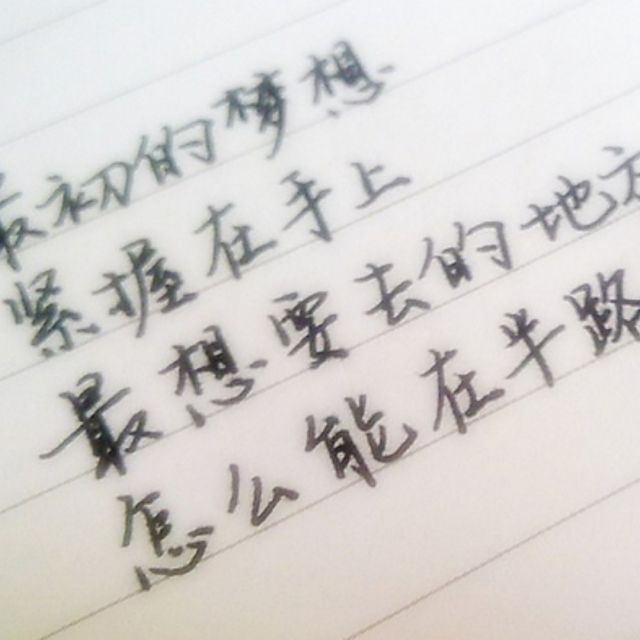 最初的梦想
紧握在手上
最想要去的地方
怎么能在半路